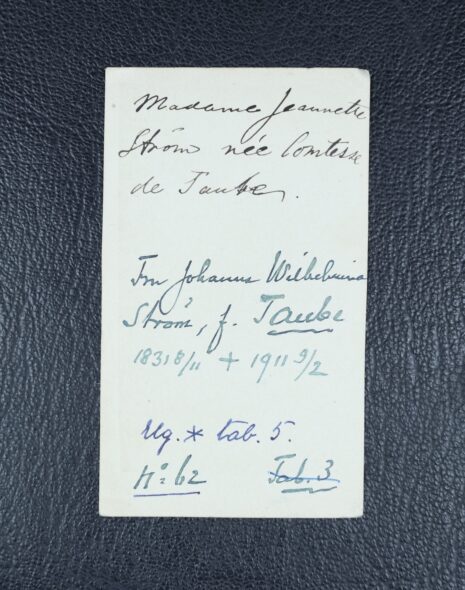 Madame Jeannette
Ström née Comtesse
de Taube.
Fru Johanna Wilhelmina
Ström, f. Taube
1831 8/11 + 1911 9/2
Ug. * tab. 5.
No: 62 Tab. 3